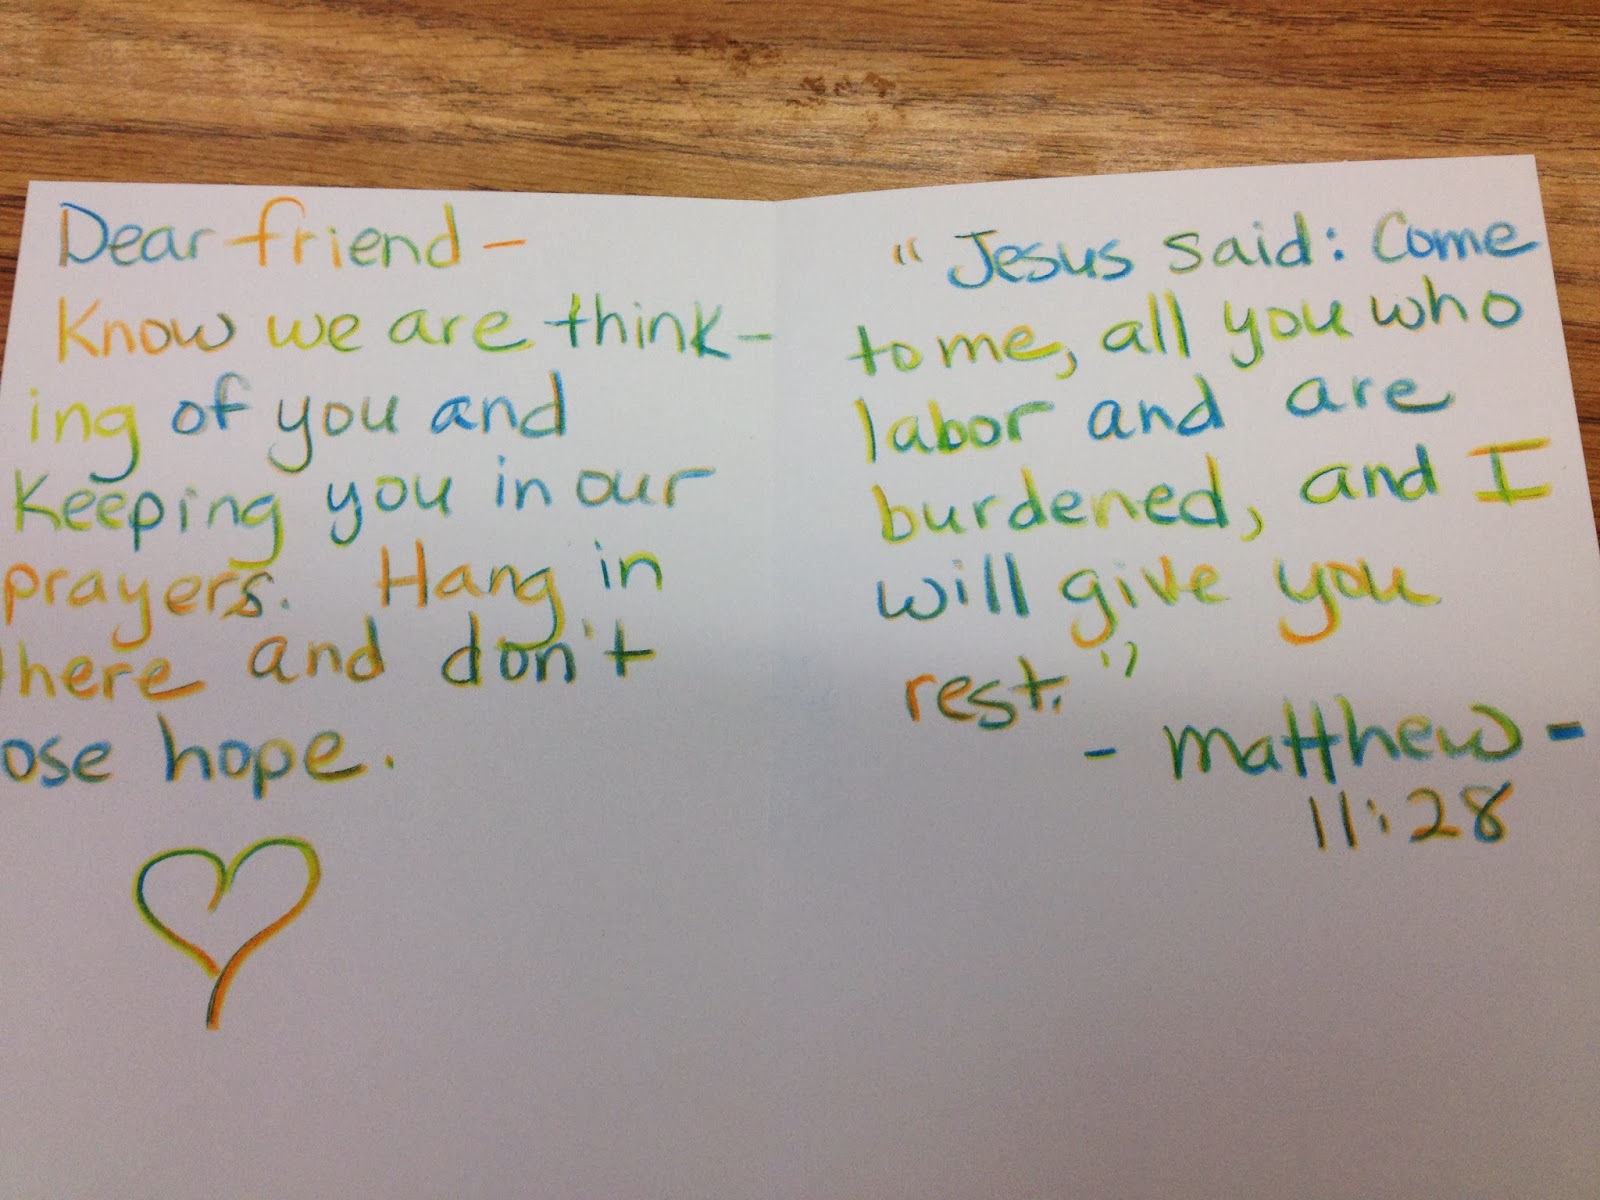 Dear friend -
Know we are think-
ing of you and
keeping you in our
prayers. Hang in
there and don't
ose hope.
"Jesus said: Come
to me, all you who
labor and are
burdened, and I
will give you
rest."
- Matthew -
11:28